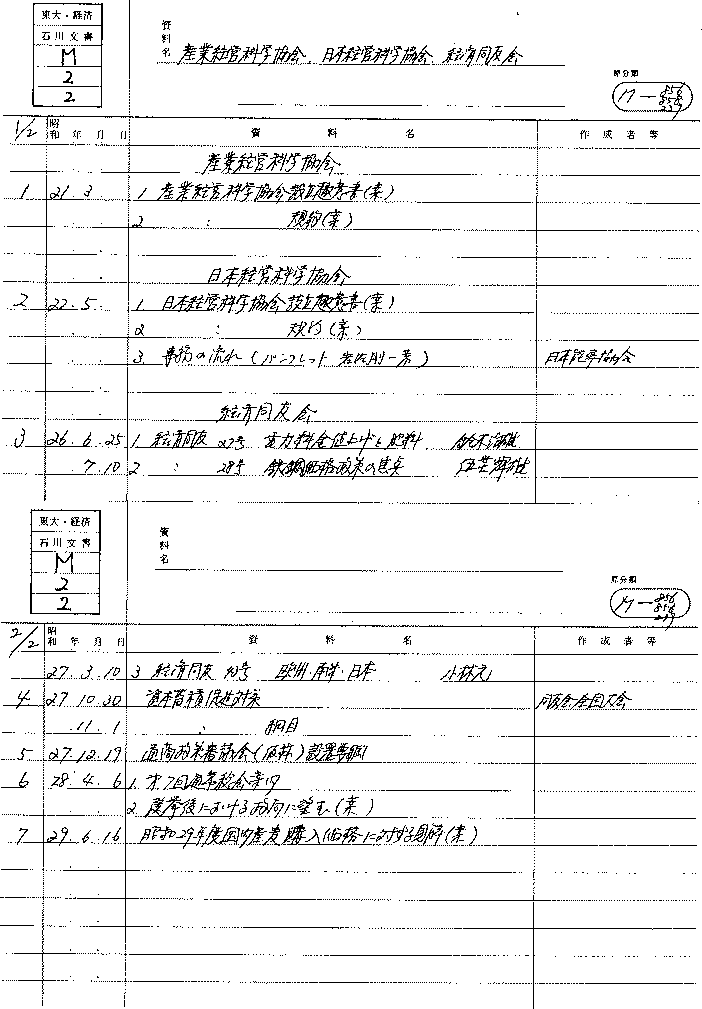 東大・経済
石川文書
M
2
2
資料名 産業経営科学協会、日本経営科学協会、経済同友会
原分類
M-856
1/2 昭和 年 月 日 資料名 作成者等
産業経営科学協会
1 21.3 1 産業経営科学協会設立趣意書(案)
2 〃 規約(案)
日本経営科学協会
2 22.5. 1. 日本経営科学協会設立趣意書(案)
2 〃 規約(案)
3. 事務の流れ(パンフレット 岩佐 一著) 日本能率協会
経済同友会
3 26.6.25 1 経済同友 27号 電力料金値上げと肥料 鈴木
7.10 2 〃 28号 鉄鋼価格政策の焦点
東大・経済
石川文書
M
2
2
資料名
原分類
M-856
2/2 昭和 年 月 日 資料名 作成者等
27.3.10 3 経済同友 号 欧州・南米・日本 小林
4 27.10.30 資本蓄積促進対策 同友会全国大会
.11.1 〃 綱目
5 27.12.19 通商政策審議会(仮称)設置要綱
6 28.4.6 1. 第7回通常総会案内
2. 選挙後における政局に望む(案)
7 29.6.16 昭和29年度国内産麦購入価格に対する見解(案)